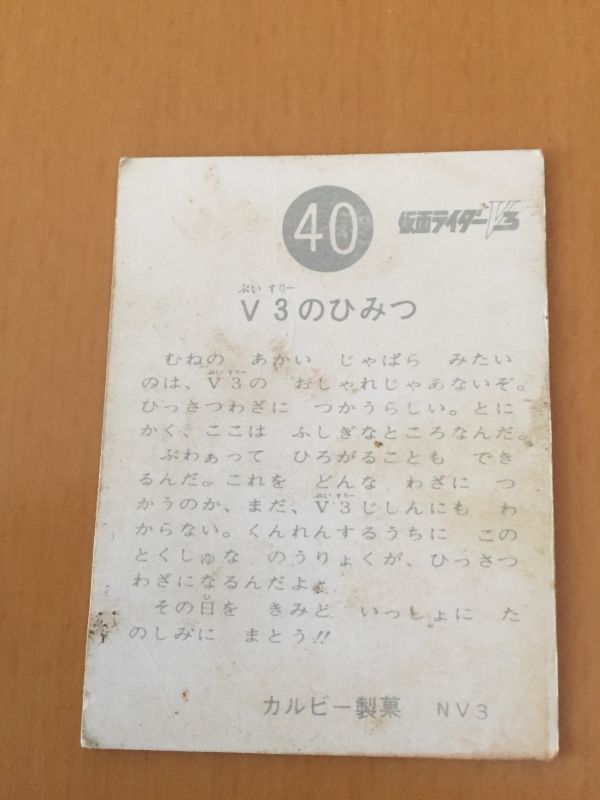 40
仮面ライダーV3
ぶい すりー
V3のひみつ
むねの あかい じゃばら みたい
ぶい すりー
のは、V3の おしゃれじゃあないぞ。
ひっさつわざに つかうらしい。とに
かく、ここは ふしぎなところなんだ。
ぶわぁって ひろがることも でき
るんだ。これを どんな わざに つ
ぶい すりー
かうのか、まだ、V3じしんにも わ
からない。くんれんするうちに この
とくしゅな のうりょくが、ひっさつ
わざになるんだよ。
ひ
その日を きみと いっしょに た
のしみに まとう!!
カルビー製菓 NV3